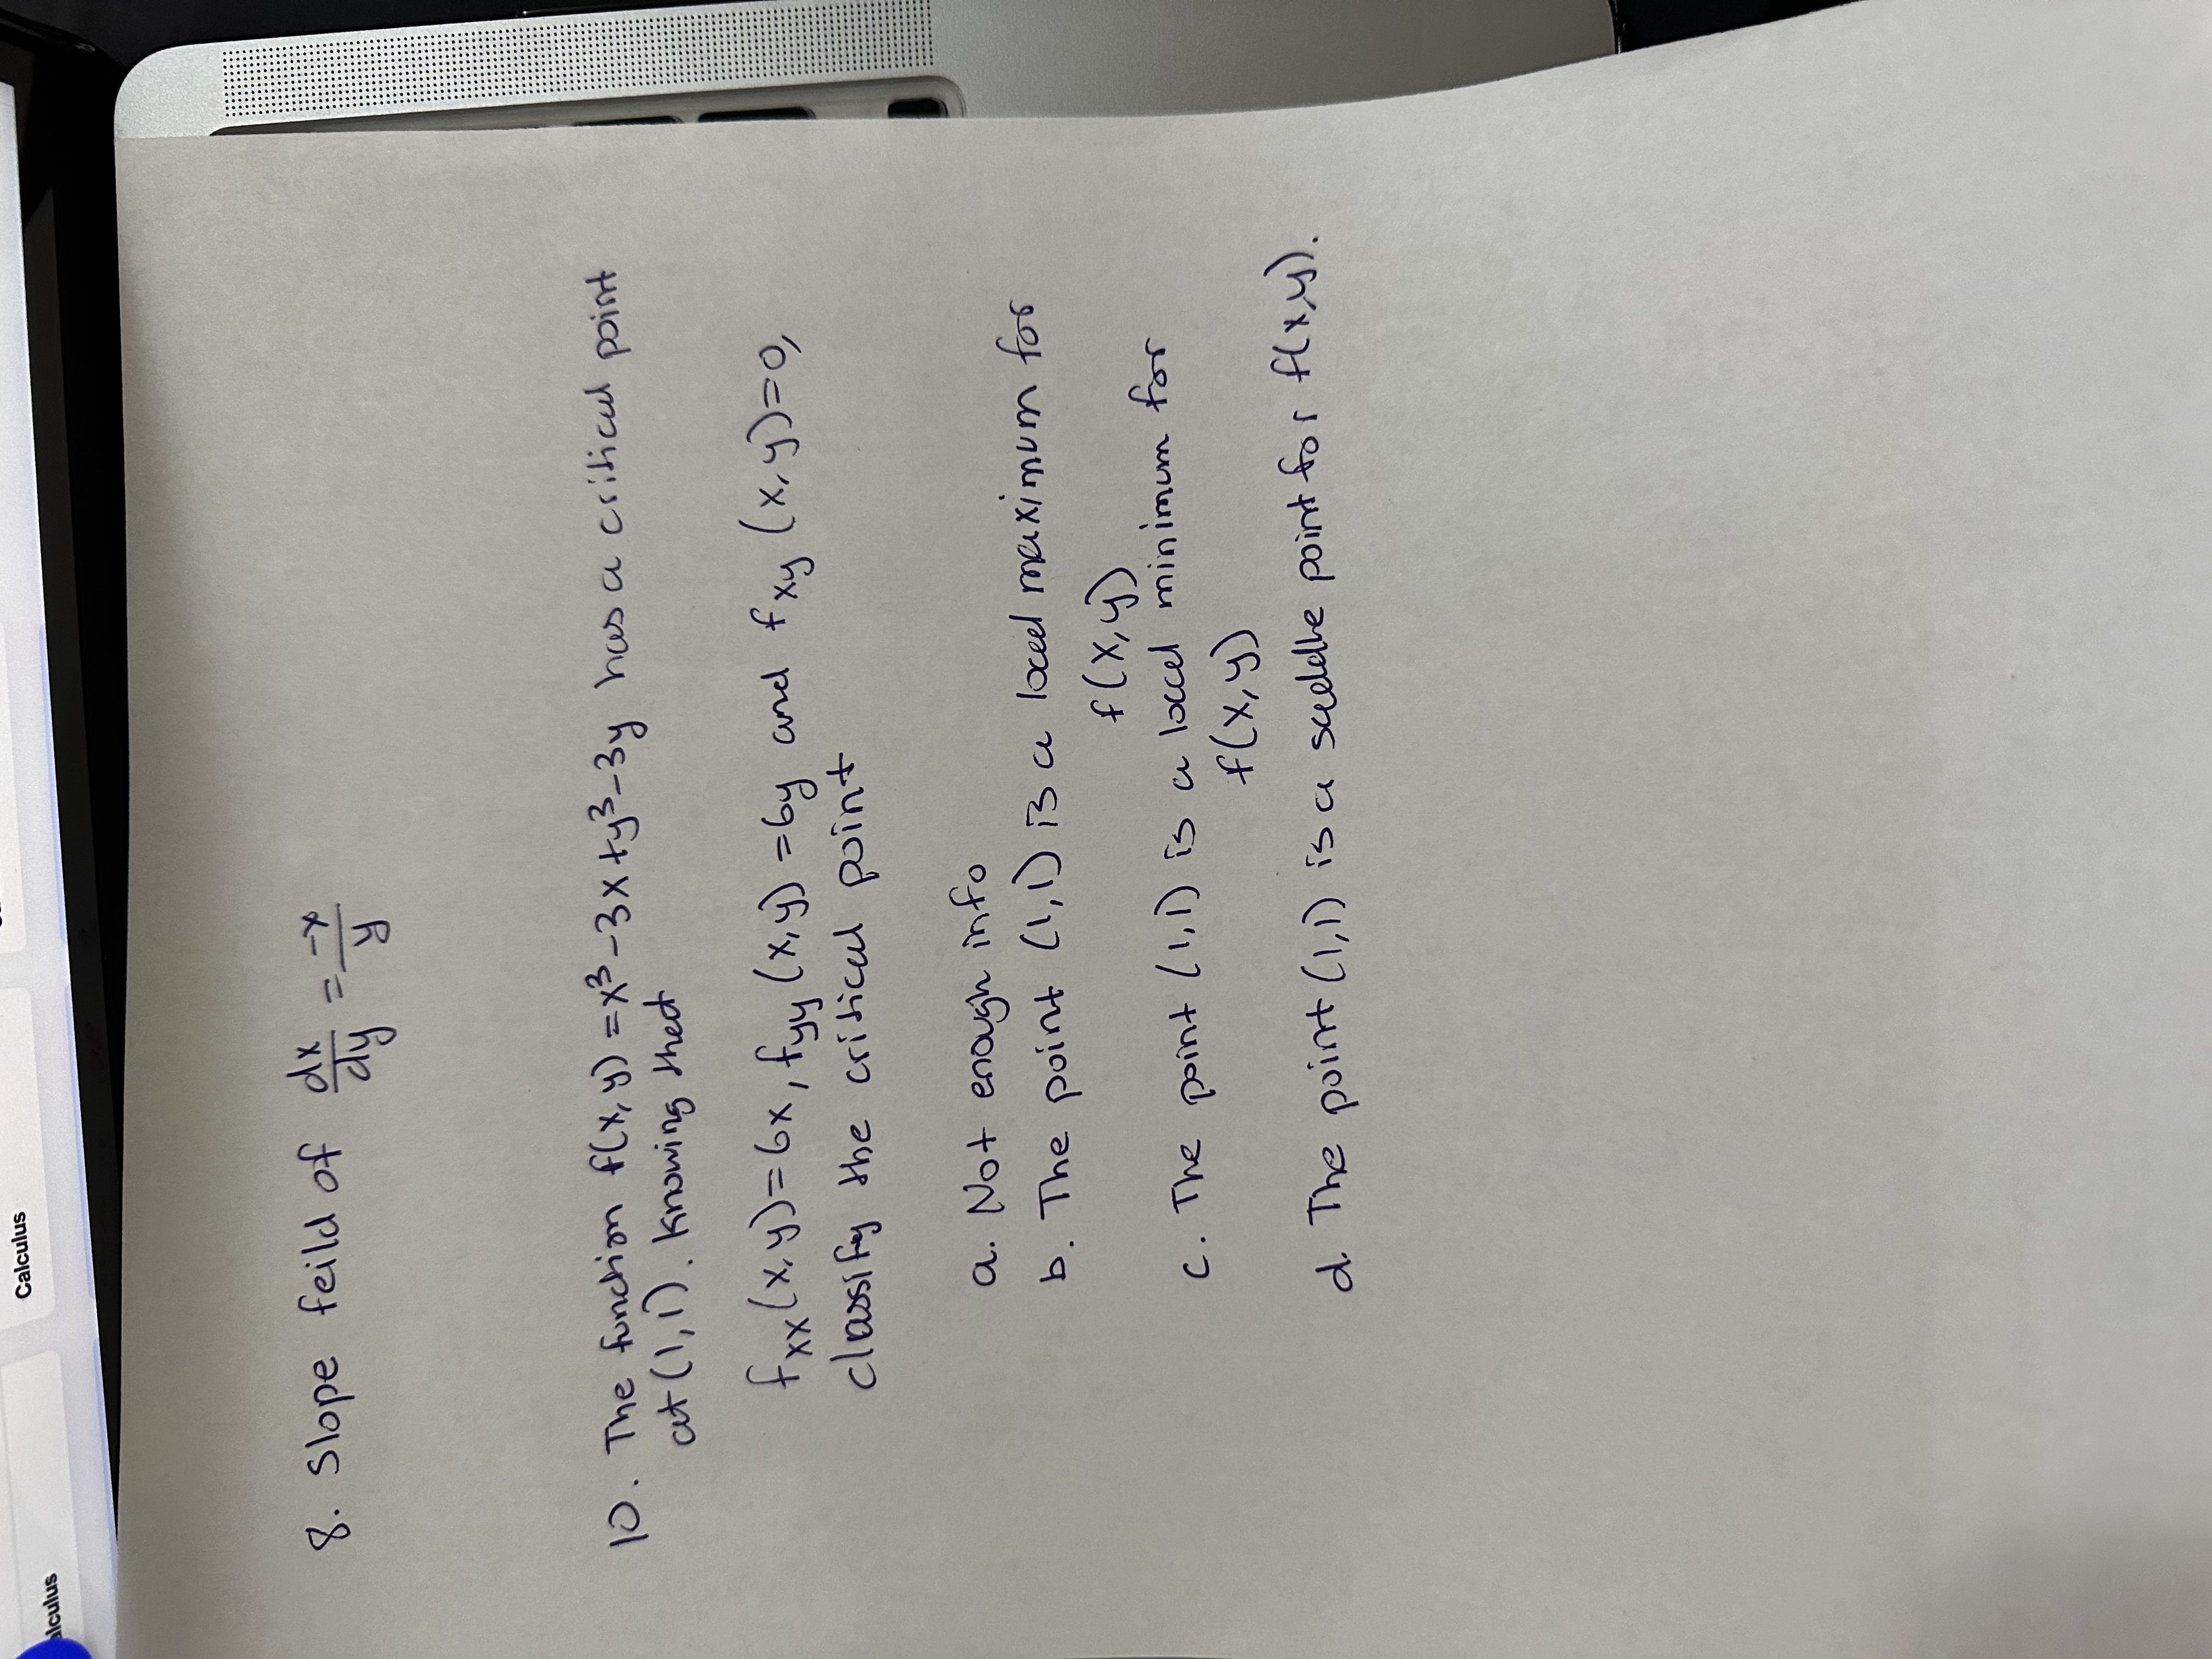 8. Slope feild of dx/dy = -x/y
10. The function f(x,y) = x³-3x+y³-3y has a critical point
at (1,1). Knowing that
fxx(x,y)=6x, fyy(x,y)=6y and fxy(x,y)=0,
classify the critical point
a. Not enough info
b. The point (1,1) is a local maximum for
f(x,y)
c. The point (1,1) is a local minimum for
f(x,y)
d. The point (1,1) is a saddle point for f(x,y).
Calculus
alculus